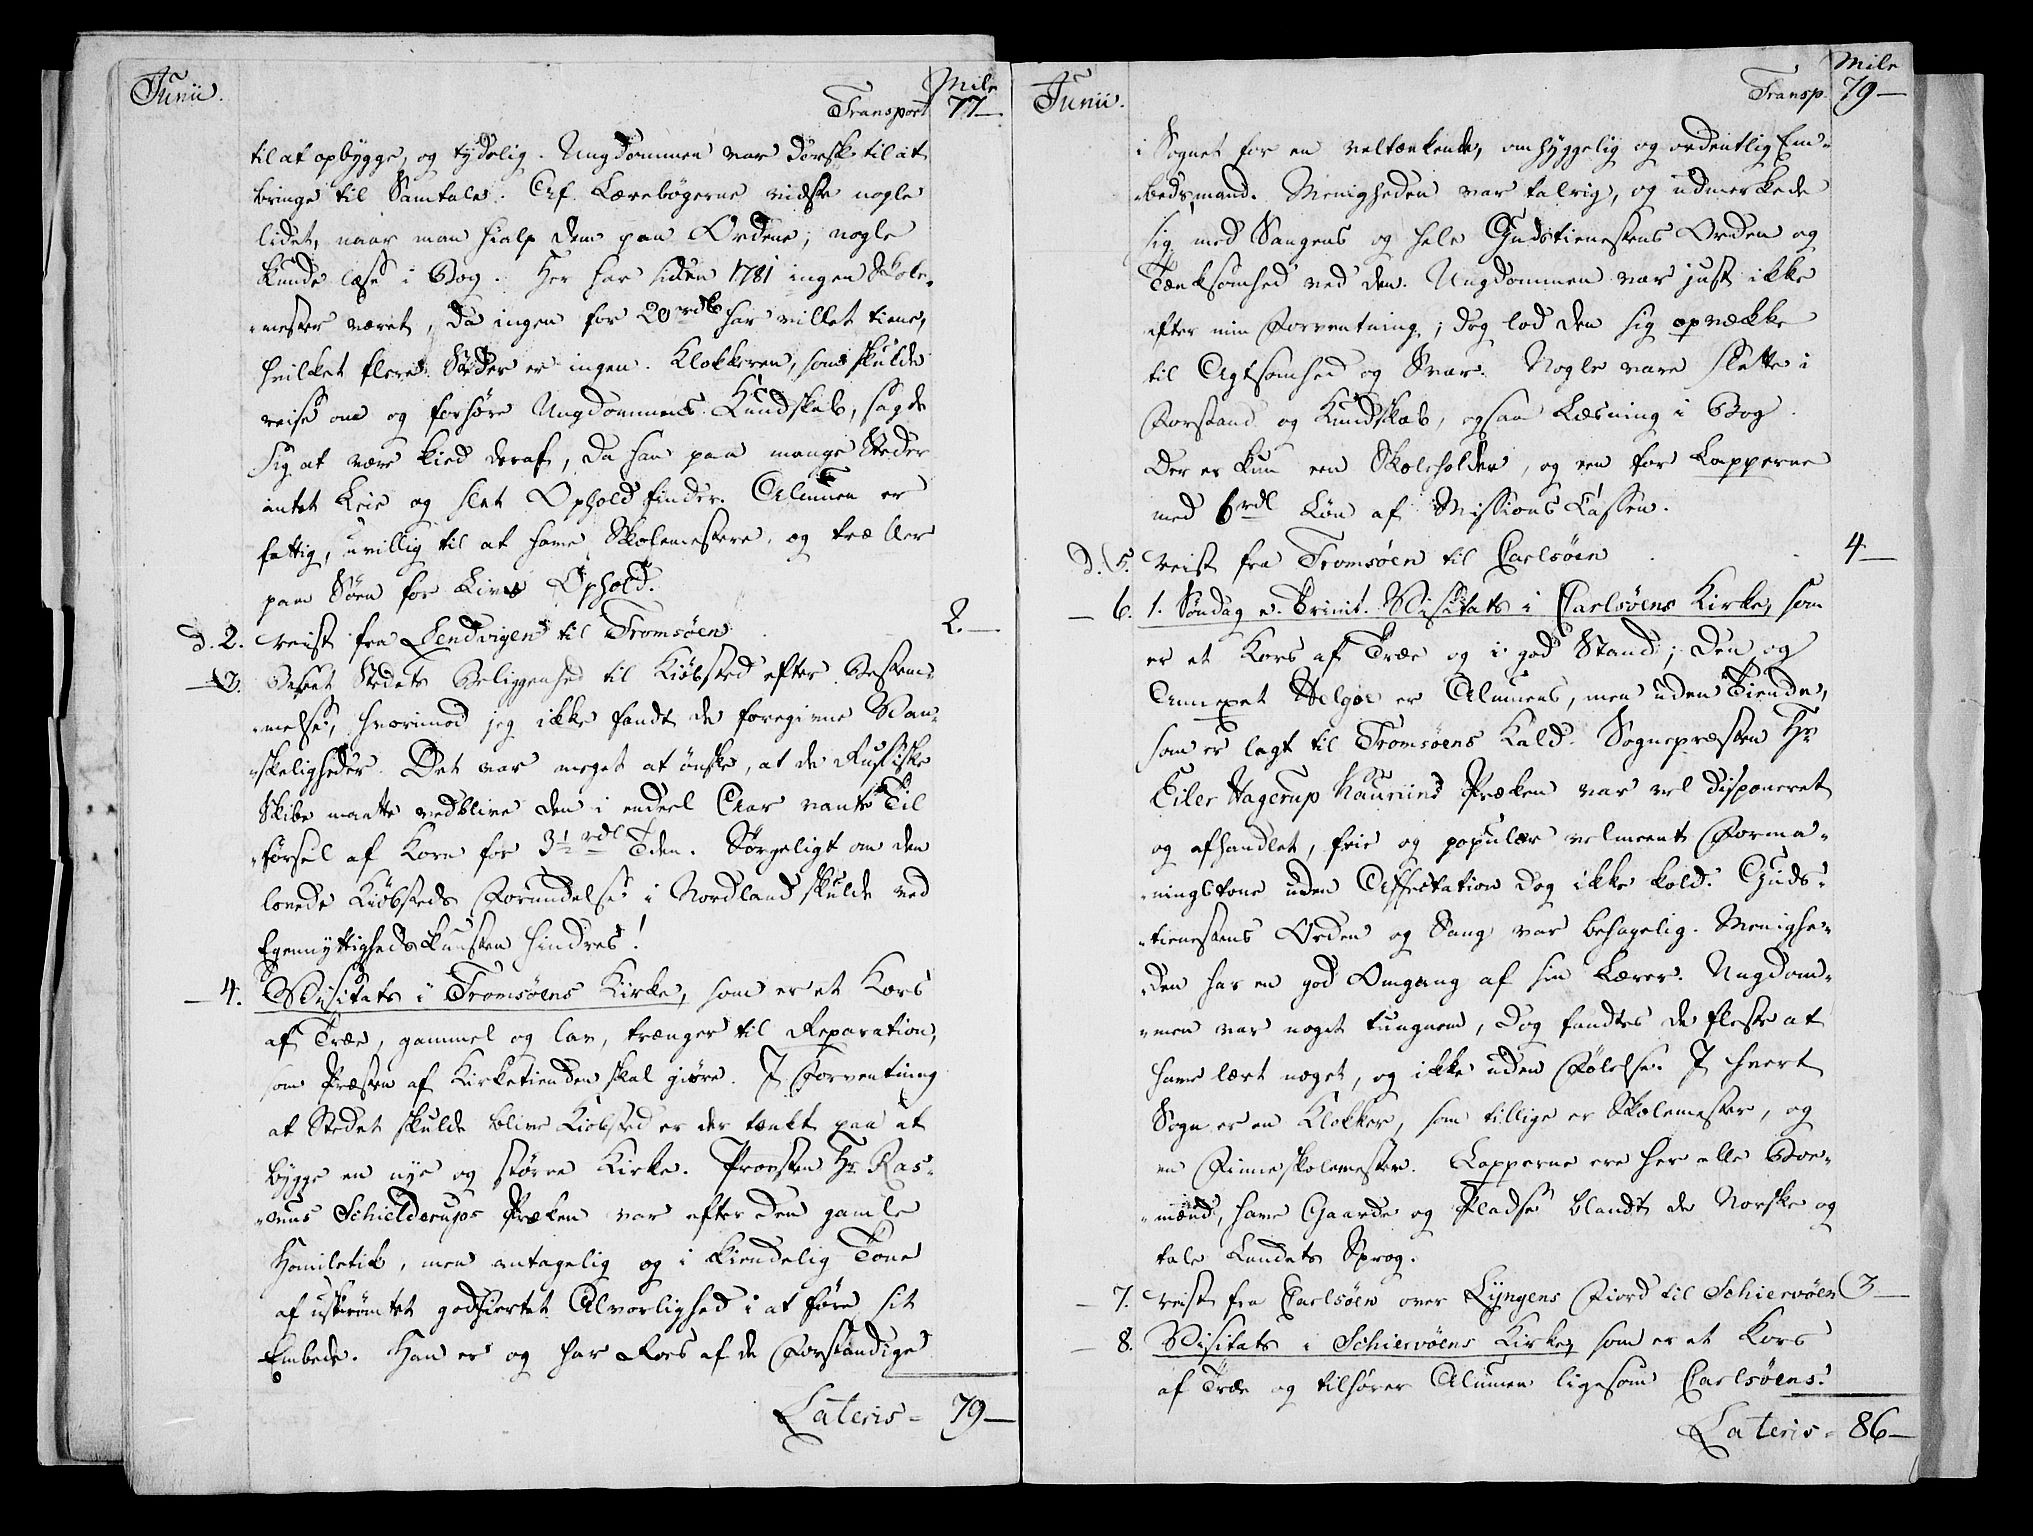 Junii.
Mile
Transport 77 —
til at opbygge, og tydelig. Ungdommen var dørsk til at
bringe til Samtale. Af Lærebøgerne vidste nogle
lidet, naar man hialp dem paa Ordene; nogle
kunde læse i Bog. Her har siden 1781 ingen Skole-
-mester været, da ingen for 20 rdl har villet tiene,
hvilket fleres Steder er ingen. Klokkeren, som skulde
reise om og forhøre Ungdommens Kundskab, sagde
sig at være kied deraf, da han paa mange Steder
intet Leie og slet Ophold finder. Almuen er
fattig, uvillig til at have Skolemestere, og træller
paa Søen for Livs Ophold.
d. 2. reist fra Lendvigen til Tromsøen 2. —
— 3. Stedets Beliggenhed til Kiøbsted efter Bestem-
-melse, hvorimod jeg ikke fandt de foregivne Van-
-skeligheder. Det var meget at ønske, at de Russiske
Skibe maatte vedblive den i endeel Aar vante Til
-førsel af Korn for 3½ rdl Tden. Sørgeligt om den
lovede Kiøbsteds Forundelse i Nordland skulde ved
Egennyttigheds Kunsten hindres!
— 4. Visitats i Tromsøens Kirke, som er et Kors
af Træ, gammel og lav, trænger til Reparation,
som Præsten af Kirketienden skal giøre. I Forventning
at Stedet skulde blive Kiøbsted er der tænkt paa at
bygge en nye og større Kirke. Provsten Hr Ras-
-mus Schielderups Præken var efter den gamle
Homiletik, men antagelig og i kiendelig Tone
af uskrømtet godhiertet Alvorlighed i at føre sit
Embede. Han er og har Roes af de Forstandige
Lateris = 79 —
Junii.
Mile
Transp. 79 —
i Sognet for en veltænkende, omhyggelig og ordentlig Em-
-bedsmand. Menigheden var talrig, og udmerkede
sig med Sangens og hele Gudstienestens Orden og
Tænksomhed ved den. Ungdommen var just ikke
efter min Forventning; dog lod den sig opvække
til Agtsomhed og Svar. Nogle vare slette i
Forstand og Kundskab, ogsaa Læsning i Bog.
Der er kun een Skoleholder, og een for Lapperne
med 6 rdl Løn af Missions Cassen.
d. 5. reist fra Tromsøen til Carlsøen 4 —
— 6. 1. Søndag e. Trinit. Visitats i Carlsøens Kirke, som
er et Kors af Træe og i god Stand; den og
Annexet Helgøe er Almuens, men uden Tiende,
som er lagt til Tromsøens Kald. Sognepræsten Hr
Eiler Hagerup Kauriins Præken var vel disponeret
og afhandlet, frie og populær velmeent Forma-
-ningstone uden Affectation dog ikke kold. Guds-
-tienestens Orden og Sang var behagelig. Menighe-
-den har en god Omgang af sin Lærer. Ungdom-
-men var noget tungnem, dog fandtes de fleste at
have lært noget, og ikke uden Følelse. I hvert
Sogn er en Klokker, som tillige er Skolemester, og
en Finneskolemester. Lapperne ere her alle Boe-
-mænd, have Gaarde og Pladse blandt de Norske og
tale Landets Sprog.
— 7. reist fra Carlsøen over Lyngens Fiord til Schiervøen 3 —
— 8. Visitats i Schiervøens Kirke, som er et Kors
af Træ og tilhører Almuen ligesom Carlsøens.
Lateris = 86 —